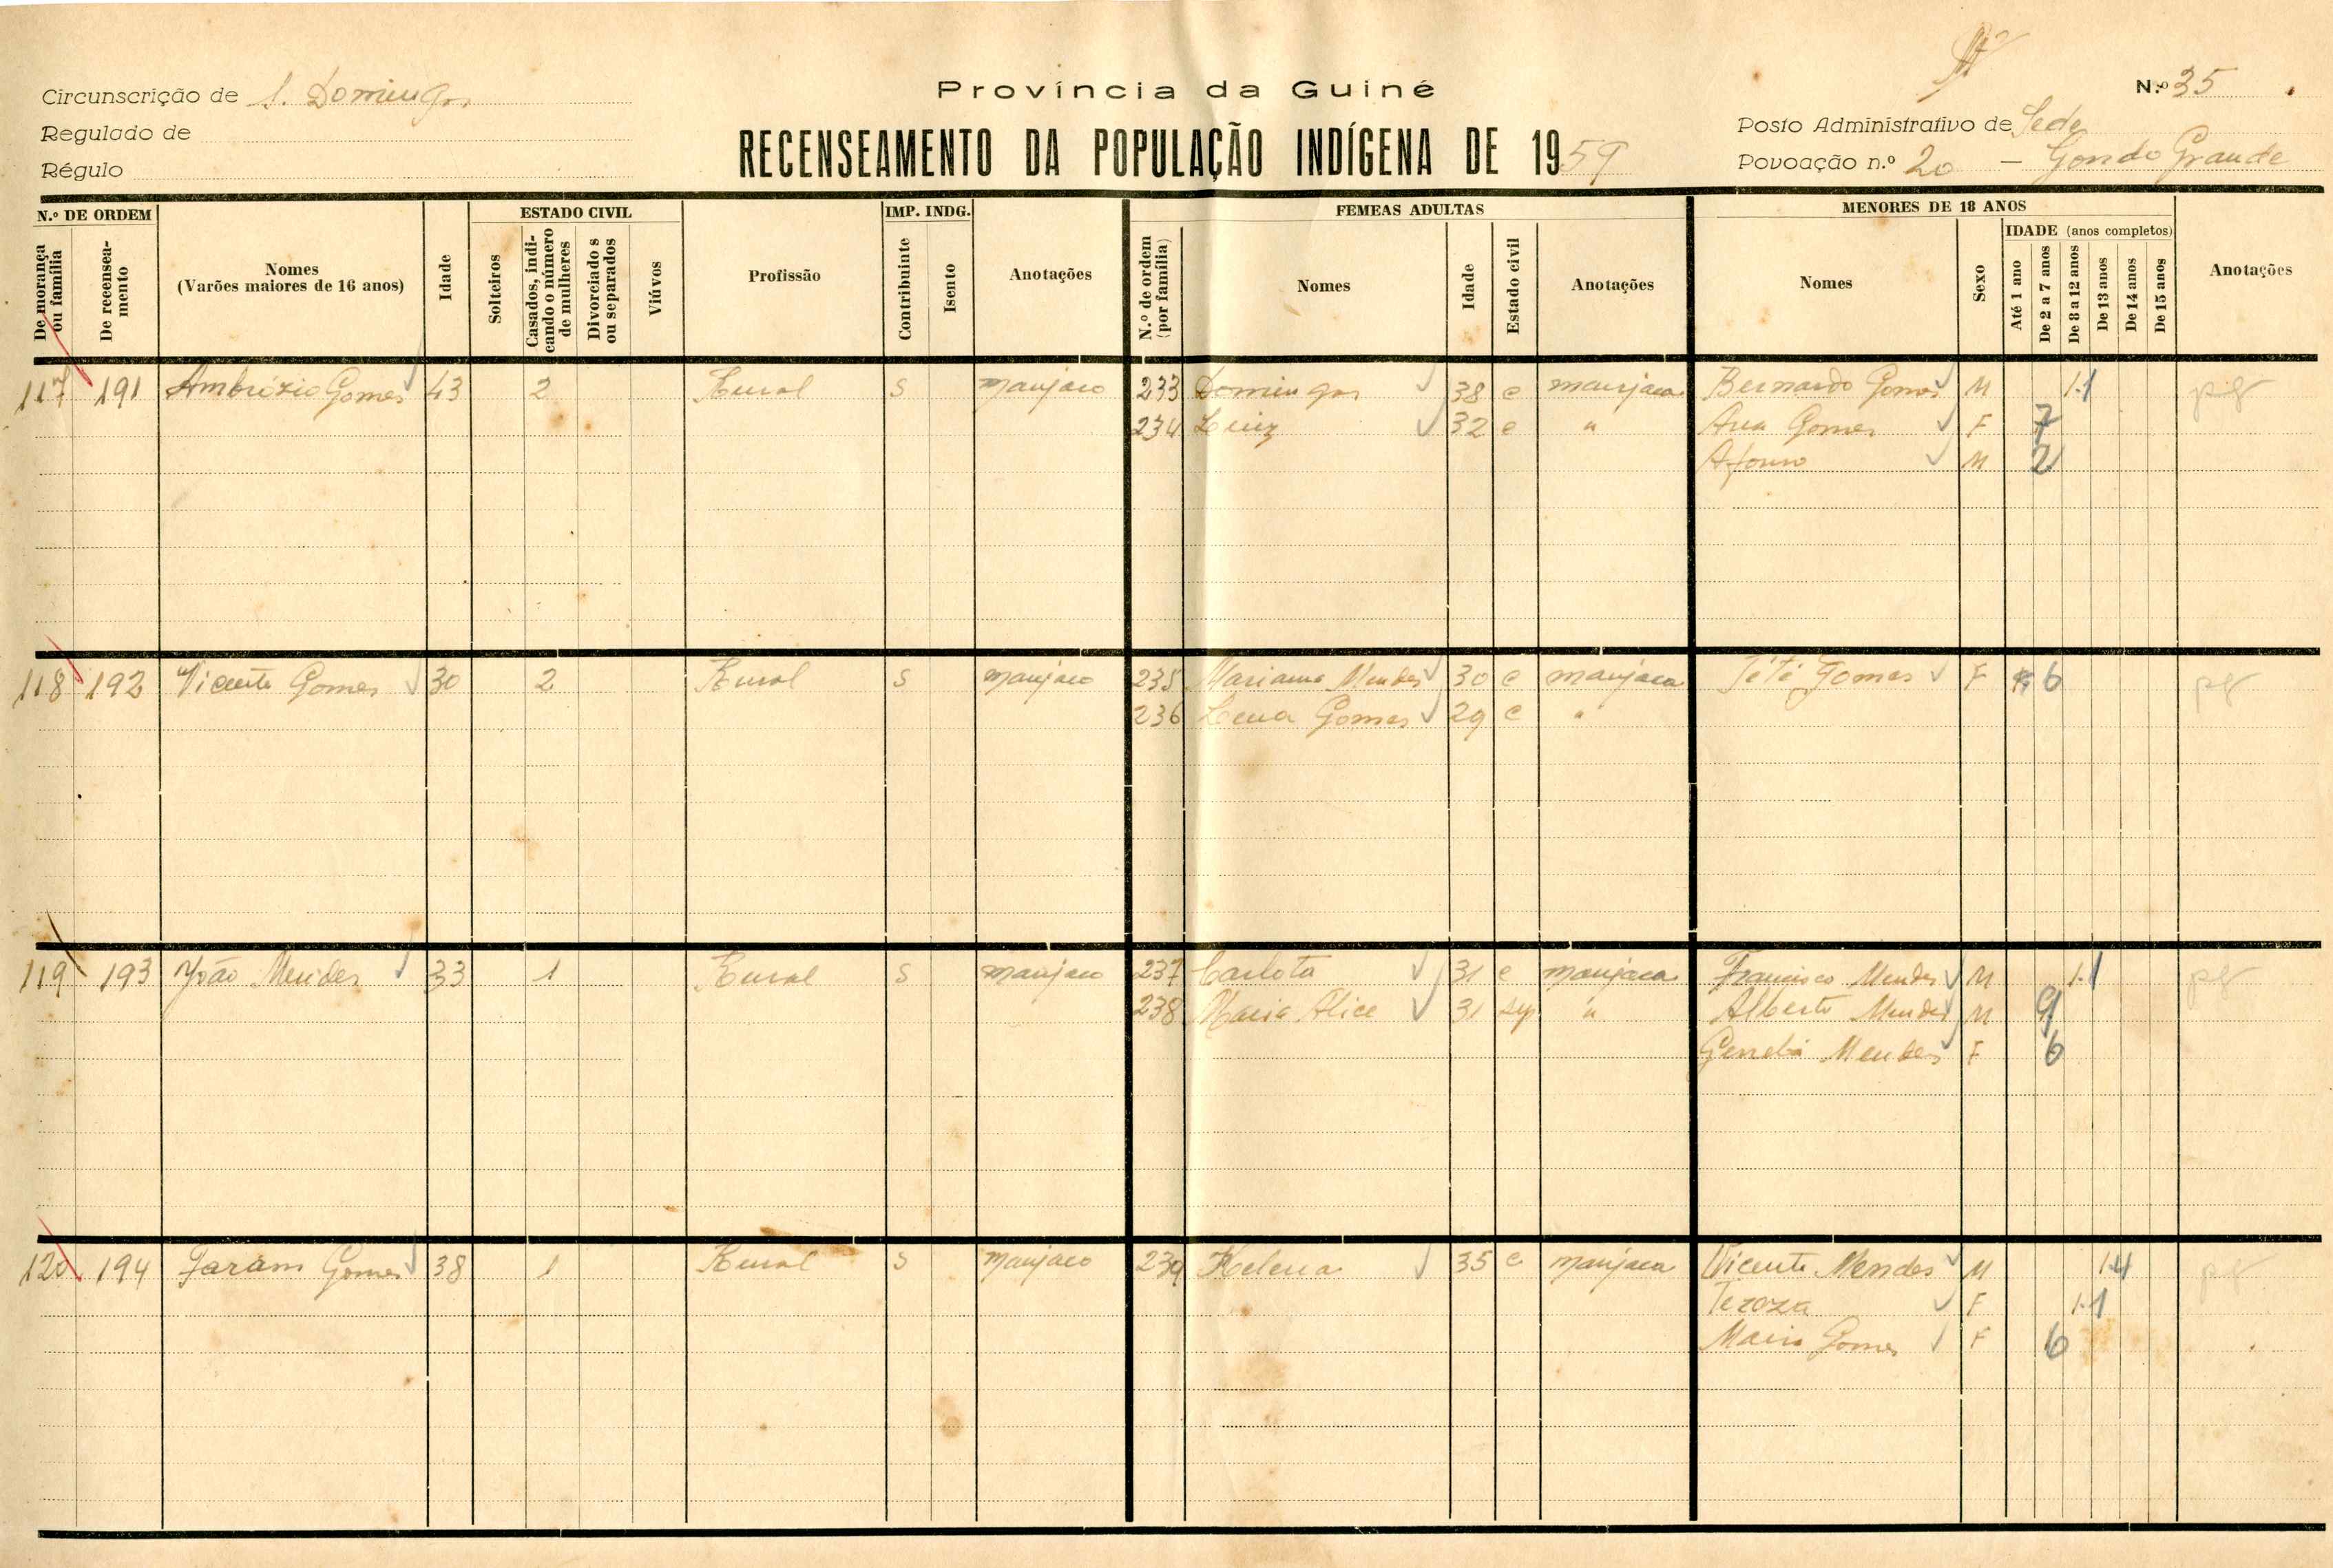 Província da Guiné
N.º 35
Circunscrição de S. Domingos
Regulado de
Régulo
RECENSEAMENTO DA POPULAÇÃO INDÍGENA DE 1959
Posto Administrativo de Sede
Povoação n.º 20 — Gondo Grande
N.º DE ORDEM
ESTADO CIVIL
IMP. INDG.
FEMEAS ADULTAS
MENORES DE 18 ANOS
De morança ou família
De recensea-mento
Nomes
(Varões maiores de 16 anos)
Idade
Solteiros
Casados, indi-cando o número de mulheres
Divorciados ou separados
Viúvos
Profissão
Contribuinte
Isento
Anotações
N.º de ordem (por família)
Nomes
Idade
Estado civil
Anotações
Nomes
Sexo
IDADE (anos completos)
Até 1 ano
De 2 a 7 anos
De 8 a 12 anos
De 13 anos
De 14 anos
De 15 anos
Anotações
117 191 Ambrózio Gomes 43 2 Rural S manjaco 233 Domingas 38 c manjaca Bernardo Gomes M 11 pg
234 Luiz 32 c " Ana Gomes F 7
Afonso M 2
118 192 Vicente Gomes 30 2 Rural S manjaco 235 Mariama Mendes 30 c manjaca Tété Gomes F 6 pg
236 Lena Gomes 29 c "
119 193 João Mendes 33 1 Rural S manjaco 237 Carlota 31 c manjaca Francisco Mendes M 11 pg
238 Maria Alice 31 sp " Alberto Mendes M 9
Mendes F 6
120 194 Faram Gomes 38 1 Rural S manjaco 239 Helena 35 c manjaca Vicente Mendes M 14 pg
Tereza F 11
Maria Gomes F 6